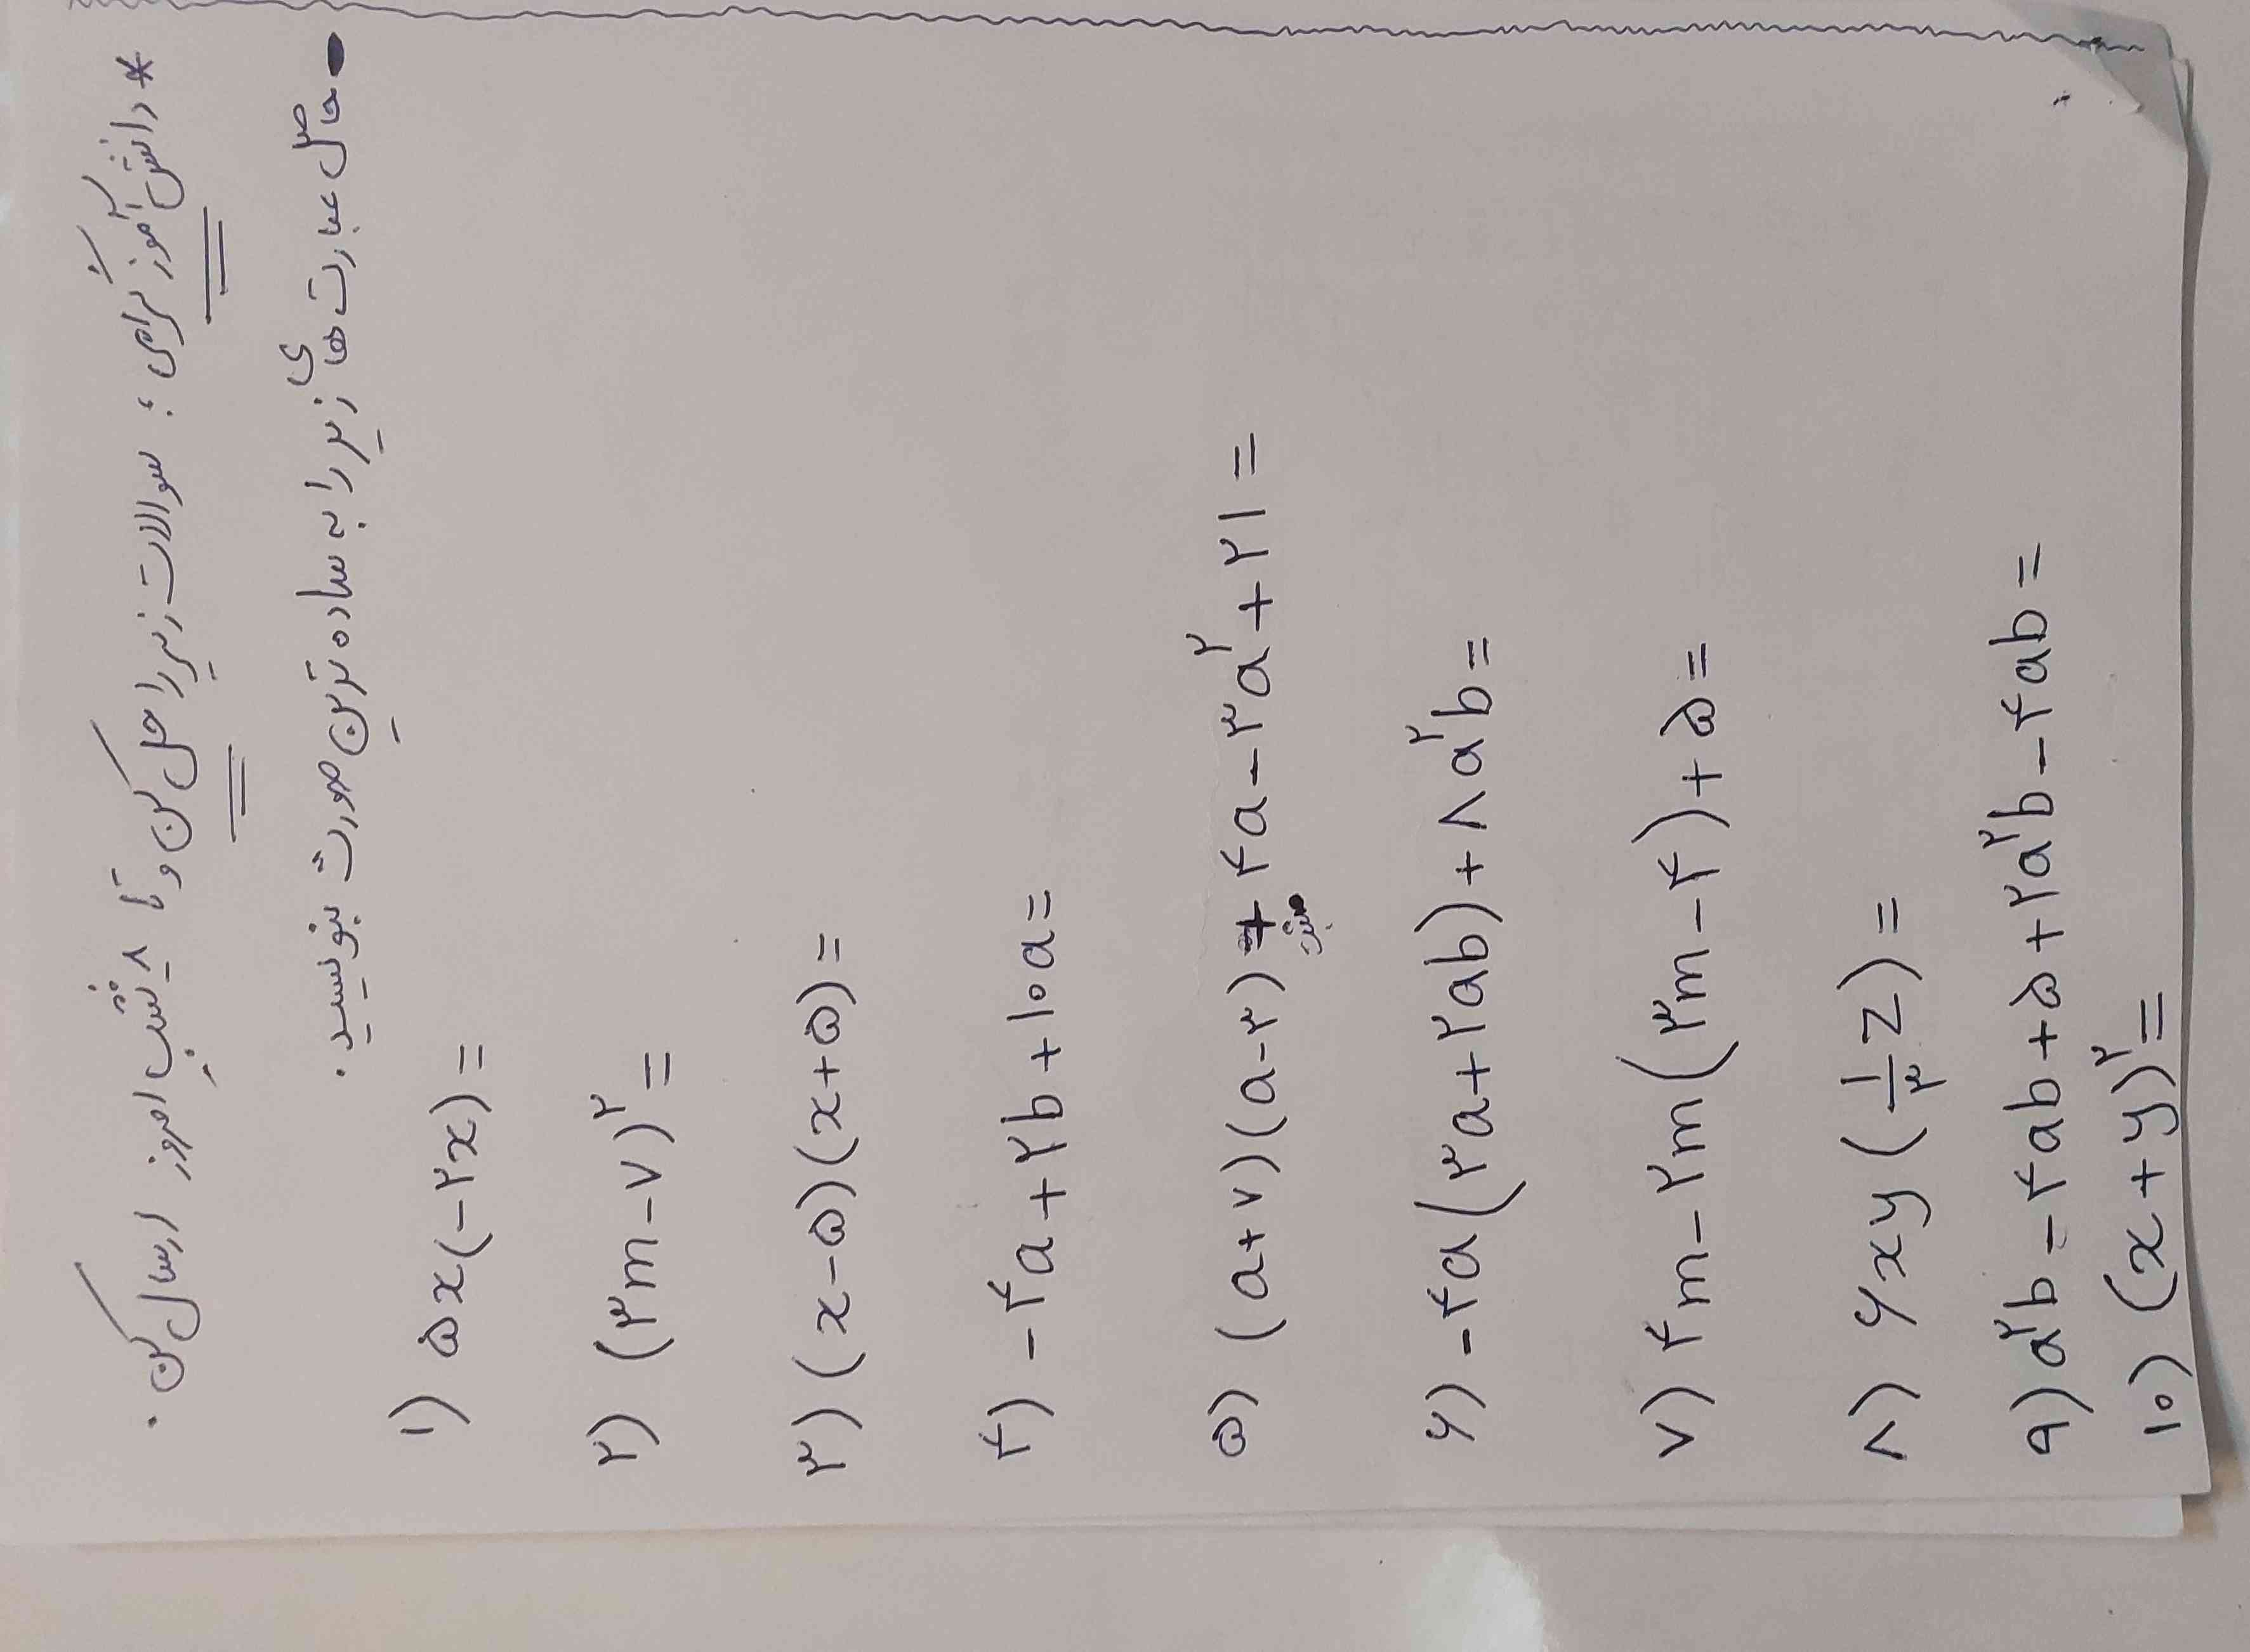 * دانش آموز گرامی ؛ سوالات زیر را حل کن و تا ۸ شب امروز ارسال کن .
● حاصل عبارت های زیر را به ساده ترین صورت بنویسید .
۱) ۵x(-۲x) =
۲) (۳m-۷)^۲ =
۳) (x-۵)(x+۵) =
۴) -۴a+۲b+۱۰a =
۵) (a+۷)(a-۳) + ۴a-۳a^۲+۲۱ =
مثبت
۶) -۴a(۳a+۲ab)+۸a^۲b =
۷) ۴m-۲m(۳m-۴)+۵ =
۸) ۶xy(۱/۳ z) =
۹) a^۲b-۴ab+۵+۲a^۲b-۴ab =
۱۰) (x+y)^۲ =